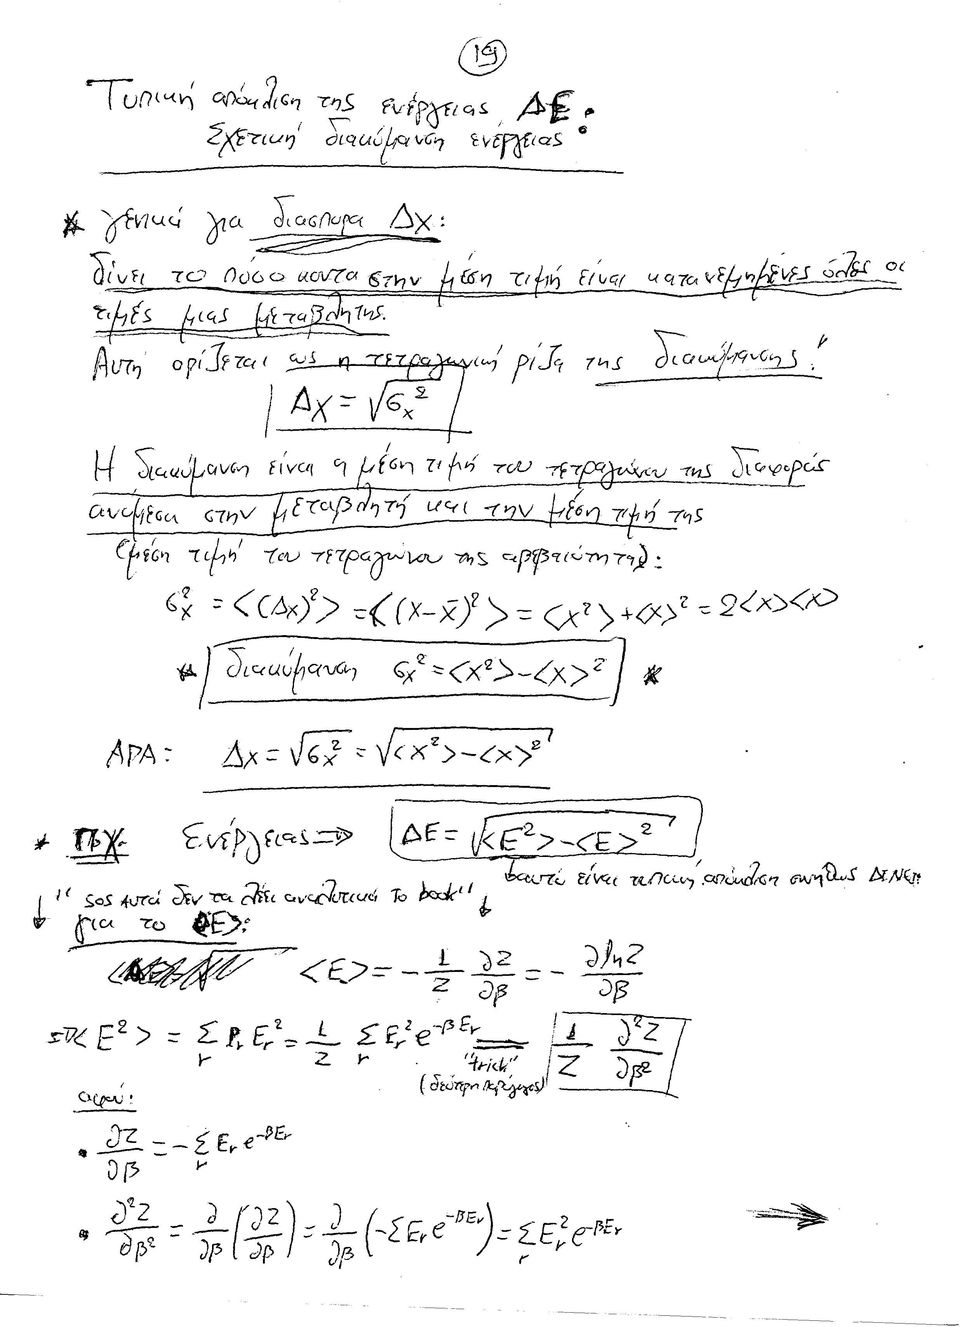 19
Τυπική απόκλιση της ενέργειας ΔΕ:
Σχετική διακύμανση ενέργειας
* γενικά για διασπορα Δx:
δίνει το πόσο κοντα στην μέση τιμή είναι κατανεμημένες όλες οι
τιμές μιας μεταβλητης.
Αυτή ορίζεται ως η τετραγωνική ρίζα της διακύμανσης!
Δx = √σx²
Η διακύμανση είναι η μέση τιμή του τετραγώνου της διαφοράς
ανάμεσα στην μεταβλητή και την μέση τιμή της
(μέση τιμή του τετραγώνου της αβεβαιότητας):
σx² = <(Δx)²> = <(x-x̄)²> = <x²>+<x>² = 2<x><x>
* διακύμανση σx² = <x²>-<x>² *
ΑΡΑ: Δx = √σx² = √<x²>-<x>²
* Π.Χ. Ενέργειας => ΔΕ = √<E²>-<E>²
αυτό είναι τυπική απόκλιση συνήθως ΔΕΝ
↓ "SOS Αυτά δεν τα λέει αναλυτικά το book" ↓
για το <E>:
<E> = - 1/Z ∂Z/∂β = - ∂lnZ/∂β
=> <E²> = Σr Pr Er² = 1/Z Σr Er² e^-βEr = 1/Z ∂²Z/∂β²
"trick"
(δεύτερη παράγωγος)
αφού:
• ∂Z/∂β = - Σr Er e^-βEr
• ∂²Z/∂β² = ∂/∂β (∂Z/∂β) = ∂/∂β (-ΣEr e^-βEr) = Σr Er² e^-βEr